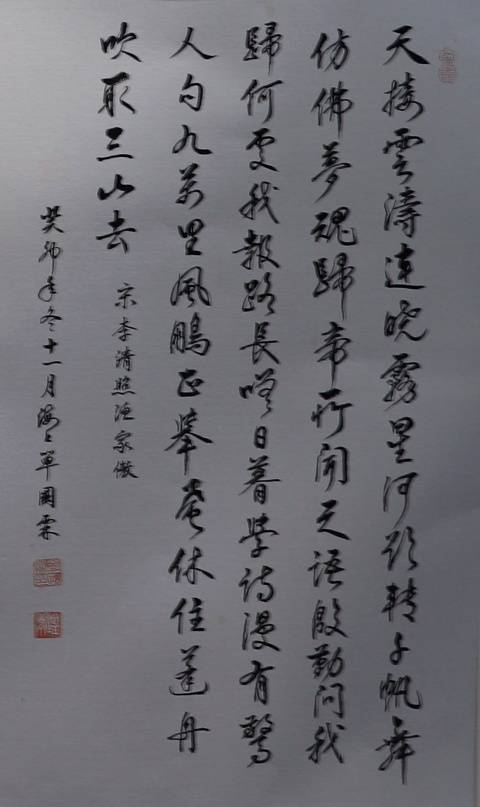 天接雲濤連晓霧星河欲轉千帆舞
仿佛夢魂歸帝所聞天語殷勤問我
歸何處我報路長嗟日暮學詩漫有驚
人句九萬里風鵬正舉風休住蓬舟
吹取三山去
宋李清照漁家傲
癸卯年冬十一月海上單國霖